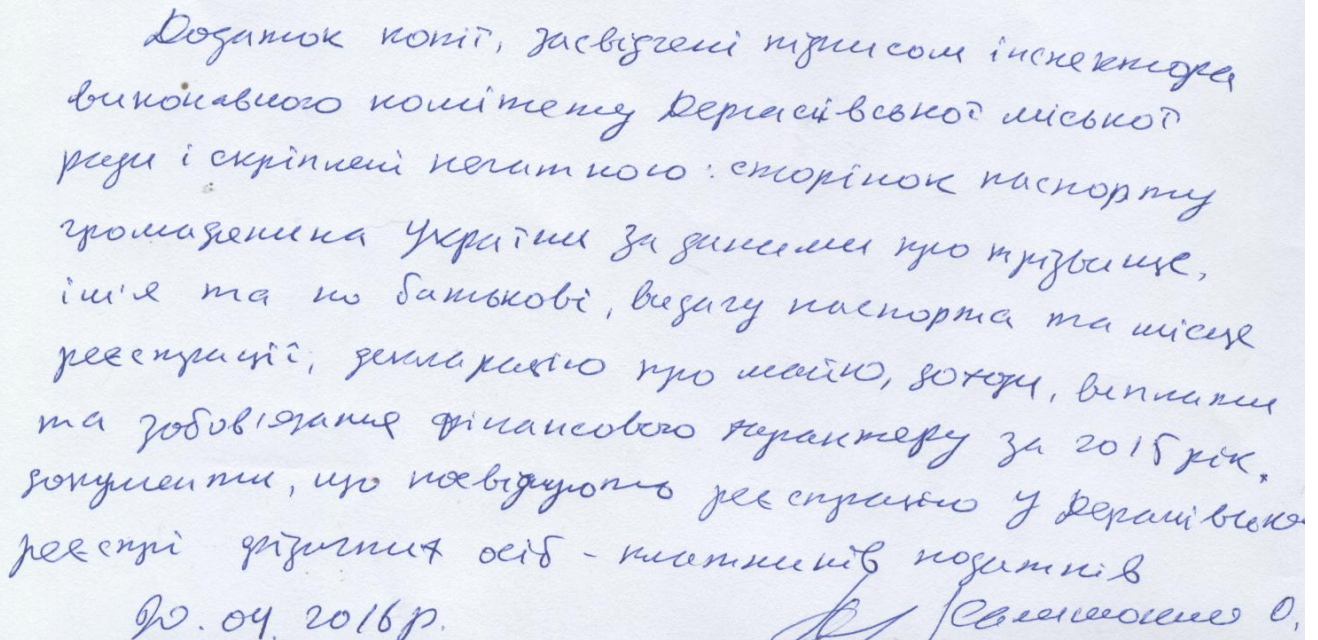 Додаток копії, засвідчені підписом інспектора
виконавчого комітету Дергачівської міської
ради і скріплені печаткою: сторінок паспорту
громадянина України за даними про прізвище,
ім'я та по батькові, видачу паспорта та місце
реєстрації, декларацію про майно, доходи, виплати
та зобов'язання фінансового характеру за 2015 рік.
документи, що посвідчують реєстрацію у
реєстрі фізичних осіб - платників податків
20.04.2016 р. О.